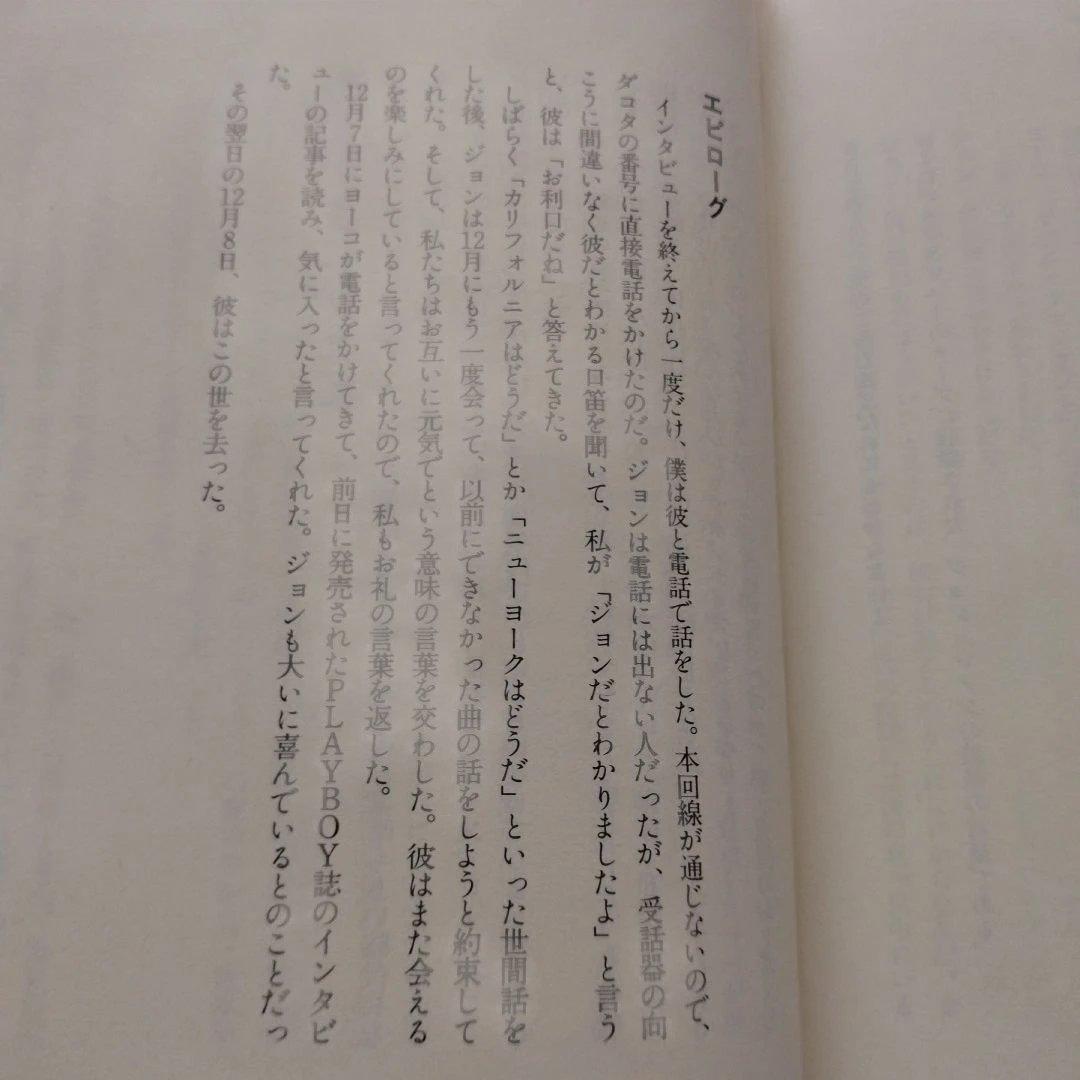 エピローグ
インタビューを終えてから一度だけ、僕は彼と電話で話をした。本回線が通じないので、
ダコタの番号に直接電話をかけたのだ。ジョンは電話には出ない人だったが、受話器の向
こうに間違いなく彼だとわかる口笛を聞いて、私が「ジョンだとわかりましたよ」と言う
と、彼は「お利口だね」と答えてきた。
しばらく「カリフォルニアはどうだ」とか「ニューヨークはどうだ」といった世間話を
した後、ジョンは12月にもう一度会って、以前にできなかった曲の話をしようと約束して
くれた。そして、私たちはお互いに元気でという意味の言葉を交わした。彼はまた会える
のを楽しみにしていると言ってくれたので、私もお礼の言葉を返した。
12月7日にヨーコが電話をかけてきて、前日に発売されたPLAYBOY誌のインタビ
ューの記事を読み、気に入ったと言ってくれた。ジョンも大いに喜んでいるとのことだっ
た。
その翌日の12月8日、彼はこの世を去った。